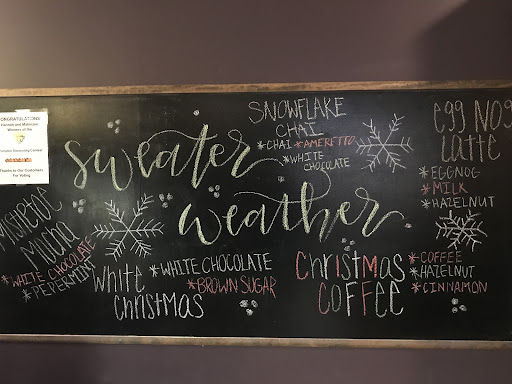 CONGRATULATIONS
Winners of the
Thanks to our Customers
For Voting
sweater
weather
SNOWFLAKE
CHAI
*CHAI *AMERETTO
*WHITE
CHOCOLATE
egg NOG
latte
*EGGNOG
*MILK
*HAZELNUT
MISTLETOE
MOCHA
*WHITE CHOCOLATE
*PEPERMINT
WHITE
CHRISTMAS
*WHITE CHOCOLATE
*BROWN SUGAR
CHRISTMAS
COFFEE
*COFFEE
*HAZELNUT
*CINNAMON